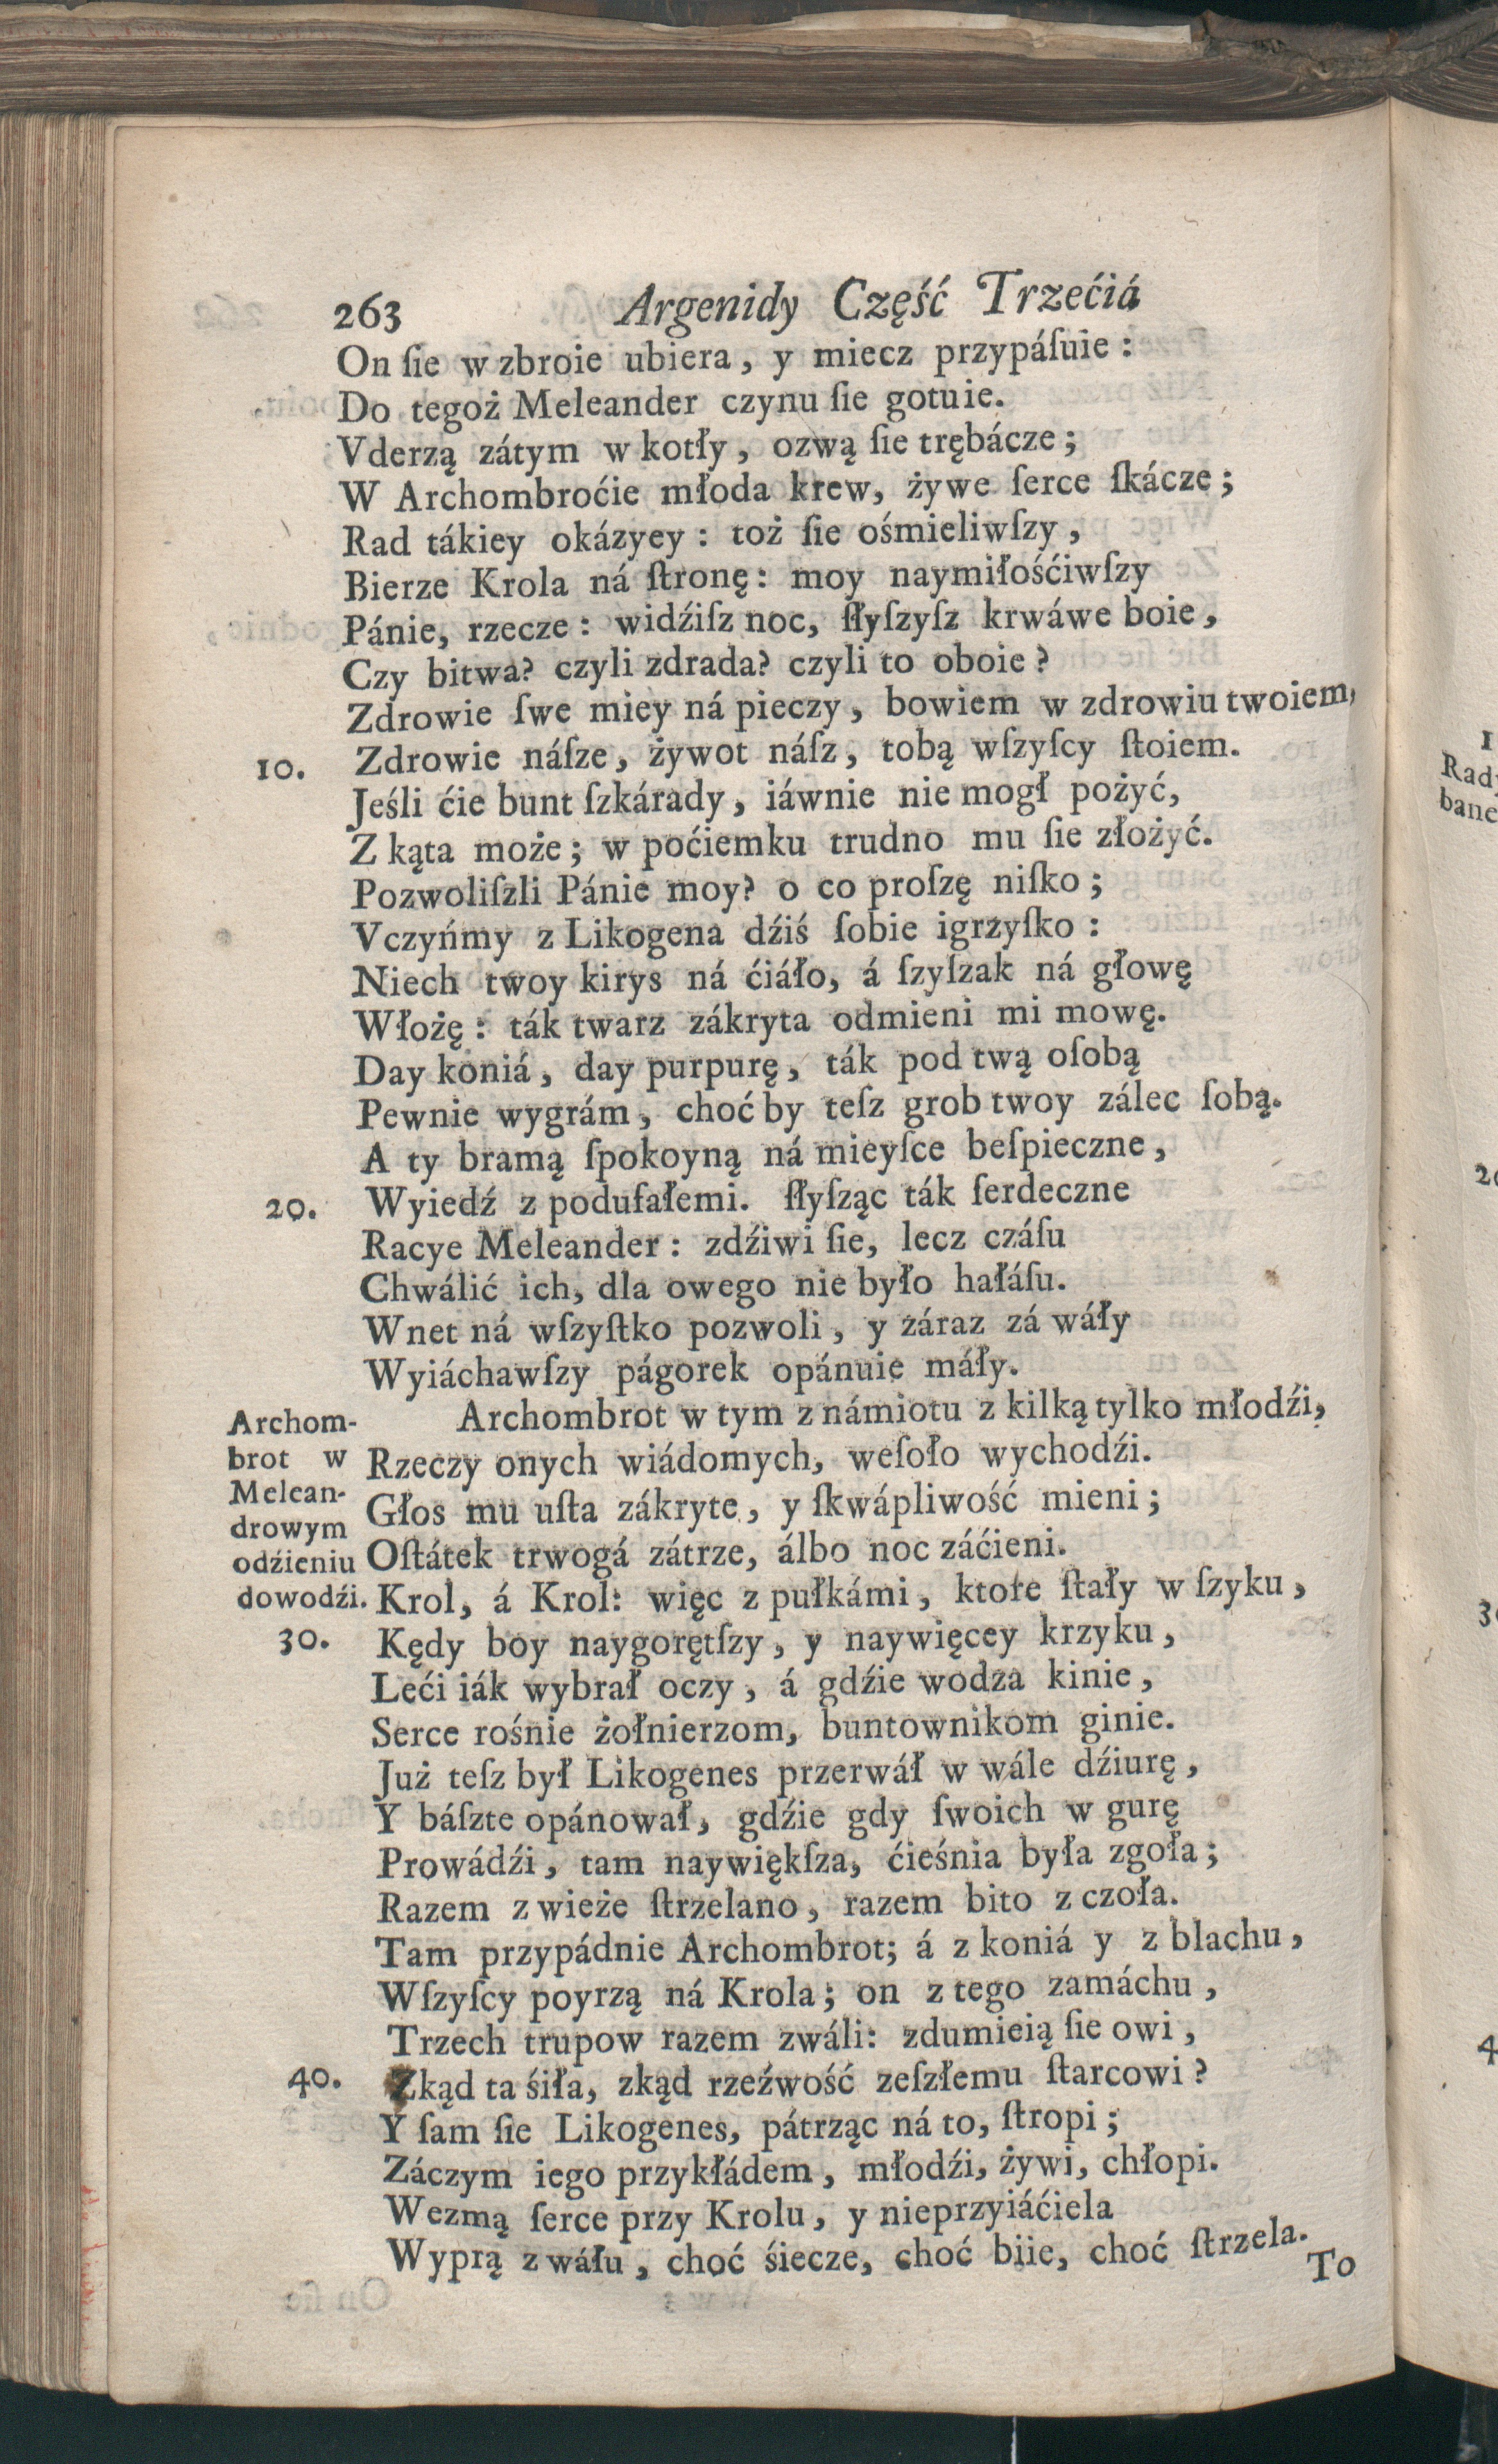 263 Argenidy Część Trzećiá
On ſie w zbroie ubiera, y miecz przypáſuie:
Do tegoż Meleander czynu ſie gotuie.
Vderzą zátym w kotły, ozwą ſie trębácze;
W Archombroćie młoda krew, żywe ſerce ſkácze;
Rad tákiey okázyey: toż ſie ośmieliwſzy,
Bierze Krola ná ſtronę: moy naymiłośćiwſzy
Pánie, rzecze: widźiſz noc, ſłyſzyſz krwáwe boie,
Czy bitwa? czyli zdrada? czyli to oboie?
Zdrowie ſwe miey ná pieczy, bowiem w zdrowiu twoiem,
10. Zdrowie náſze, żywot náſz, tobą wſzyſcy ſtoiem.
Jeśli ćie bunt ſzkárady, iáwnie nie mogł pożyć,
Z kąta może; w poćiemku trudno mu ſie złożyć.
Pozwoliſzli Pánie moy? o co proſzę niſko;
Vczyńmy z Likogena dźiś ſobie igrzyſko:
Niech twoy kirys ná ćiáło, á ſzyſzak ná głowę
Włożę: ták twarz zákryta odmieni mi mowę.
Day koniá, day purpurę, ták pod twą oſobą
Pewnie wygrám, choć by teſz grob twoy zálec ſobą.
A ty bramą ſpokoyną ná mieyſce beſpieczne,
20. Wyiedź z podufałemi. ſłyſząc ták ſerdeczne
Racye Meleander: zdźiwi ſie, lecz czáſu
Chwálić ich, dla owego nie było hałáſu.
Wnet ná wſzyſtko pozwoli, y záraz zá wáły
Wyiáchawſzy págorek opánuie máły.
Archombrot w tym z námiotu z kilką tylko młodźi,
Rzeczy onych wiádomych, weſoło wychodźi.
Głos mu uſta zákryte, y ſkwápliwość mieni;
Oſtátek trwogá zátrze, álbo noc záćieni.
Krol, á Krol: więc z pułkámi, ktore ſtały w ſzyku,
Archom-
brot w
Melean-
drowym
odźieniu
dowodźi.
30. Kędy boy naygorętſzy, y naywięcey krzyku,
Leći iák wybrał oczy, á gdźie wodza kinie,
Serce rośnie żołnierzom, buntownikom ginie.
Już teſz był Likogenes przerwáł w wále dźiurę,
Y báſzte opánował, gdźie gdy ſwoich w gurę
Prowádźi, tam naywiękſza, ćieśnia była zgoła;
Razem z wieże ſtrzelano, razem bito z czoła.
Tam przypádnie Archombrot; á z koniá y z blachu,
Wſzyſcy poyrzą ná Krola; on z tego zamáchu,
Trzech trupow razem zwáli: zdumieią ſie owi,
40. Zkąd ta śiła, zkąd rzeźwość zeſzłemu ſtarcowi?
Y ſam ſie Likogenes, pátrząc ná to, ſtropi;
Záczym iego przykłádem, młodźi, żywi, chłopi.
Wezmą ſerce przy Krolu, y nieprzyiáćiela
Wyprą z wáłu, choć śiecze, choć biie, choć ſtrzela.
To